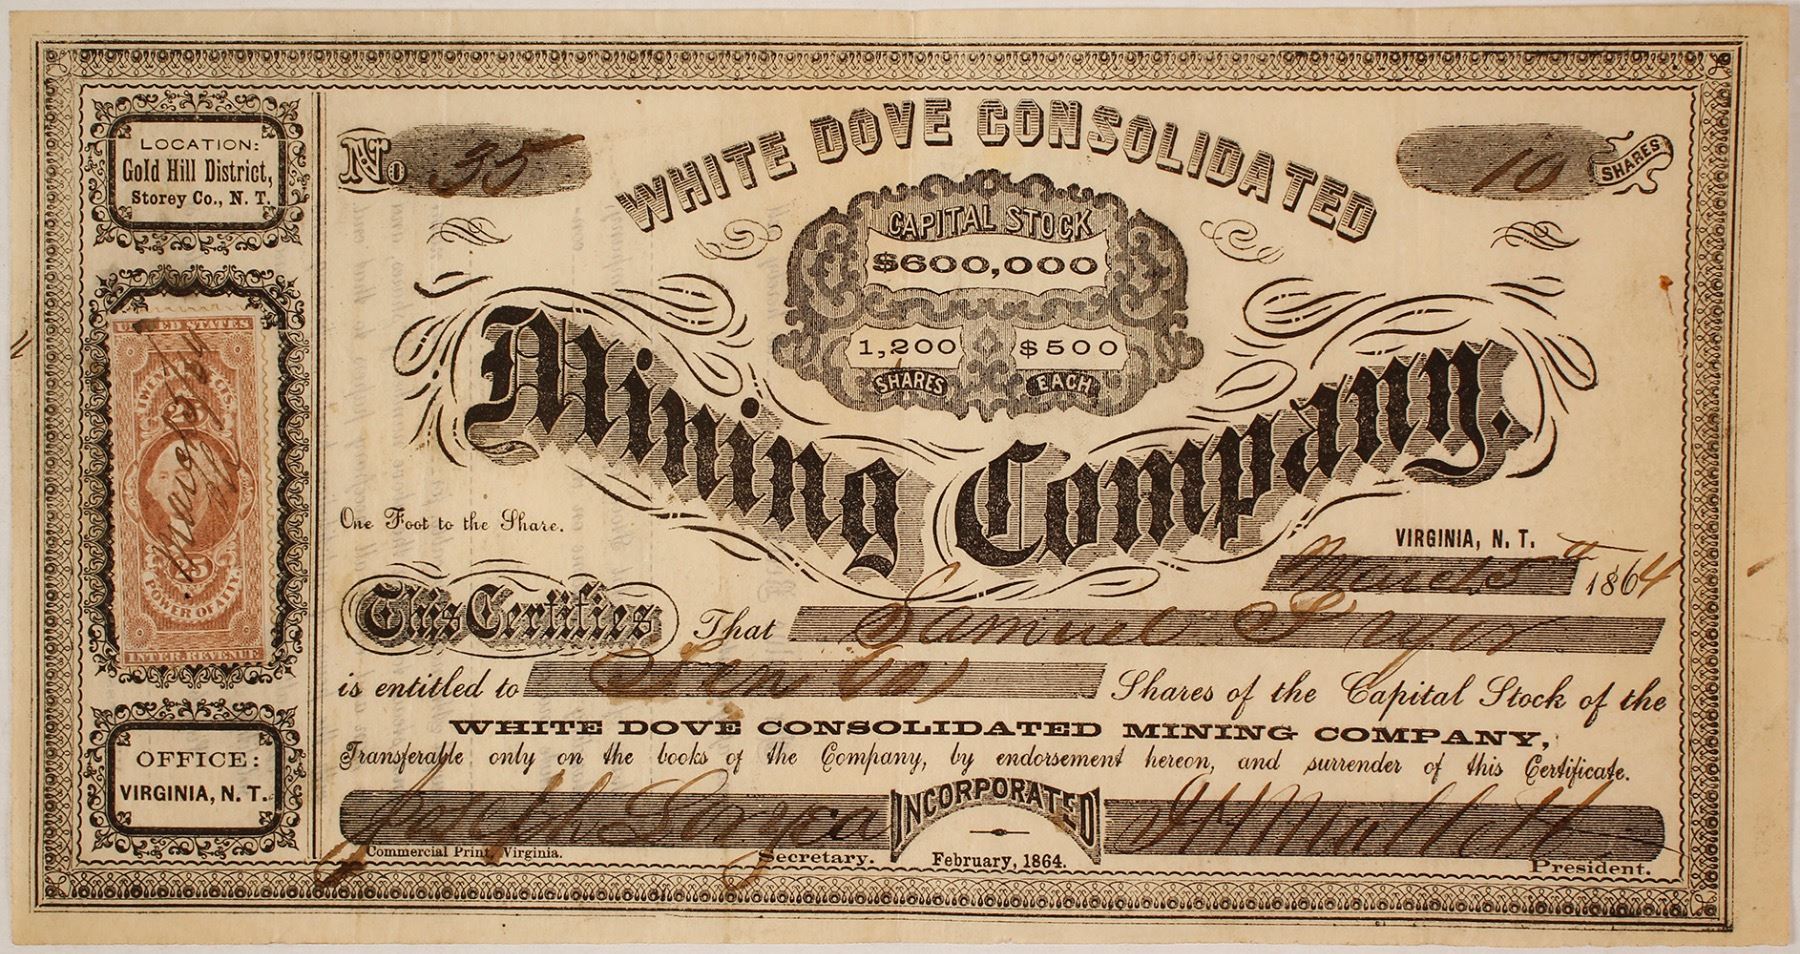 LOCATION:
Gold Hill District,
Storey Co., N. T.
UNITED STATES
TWENTY CTS.
25
POWER OF ATTY.
INTER. REVENUE
OFFICE:
VIRGINIA, N. T.
No 35
WHITE DOVE CONSOLIDATED
10 SHARES
CAPITAL STOCK
$600,000
1,200 $500
SHARES EACH
Mining Company.
One Foot to the Share.
VIRGINIA, N. T.
March 5th 1864
This Certifies That Samuel Pryor
is entitled to Ten (10) Shares of the Capital Stock of the
WHITE DOVE CONSOLIDATED MINING COMPANY,
Transferable only on the books of the Company, by endorsement hereon, and surrender of this Certificate.
Joseph
INCORPORATED
Commercial Print, Virginia.
Secretary.
February, 1864.
President.